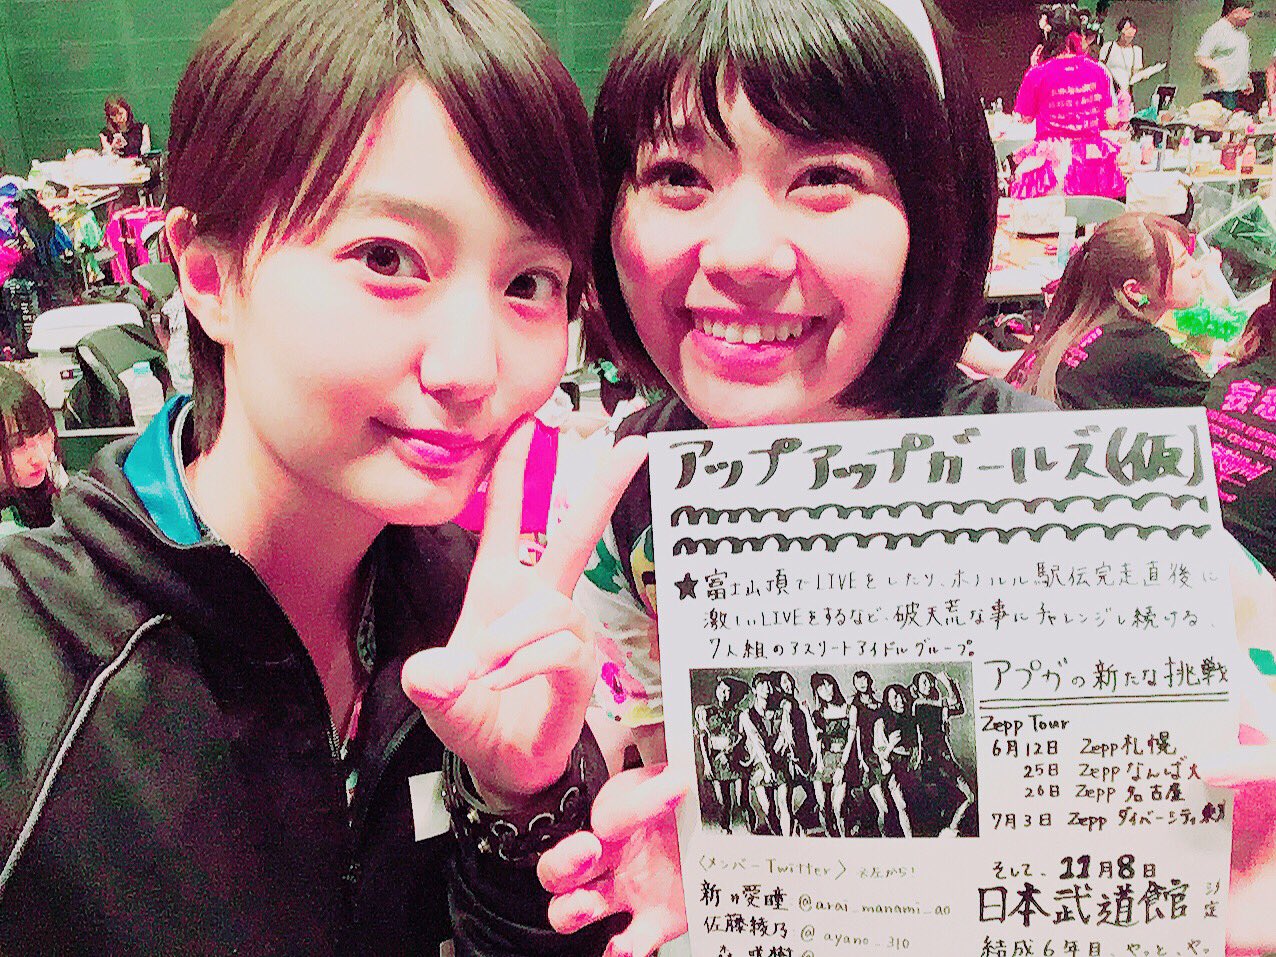 アップアップガールズ(仮)
★富士山頂でLIVEをしたり、ホノルル駅伝完走直後に
激しいLIVEをするなど、破天荒な事にチャレンジし続ける、
7人組のアスリートアイドルグループ。
アプガの新たな挑戦
Zepp Tour
6月12日 Zepp札幌
25日 Zeppなんば
26日 Zepp名古屋
7月3日 Zeppダイバーシティ
そして、11月8日
日本武道館
結成6年目、やっと、やっ
〈メンバーTwitter〉
新井愛瞳 @arai_manami_ao
佐藤綾乃 @ayano_310
森咲樹 @